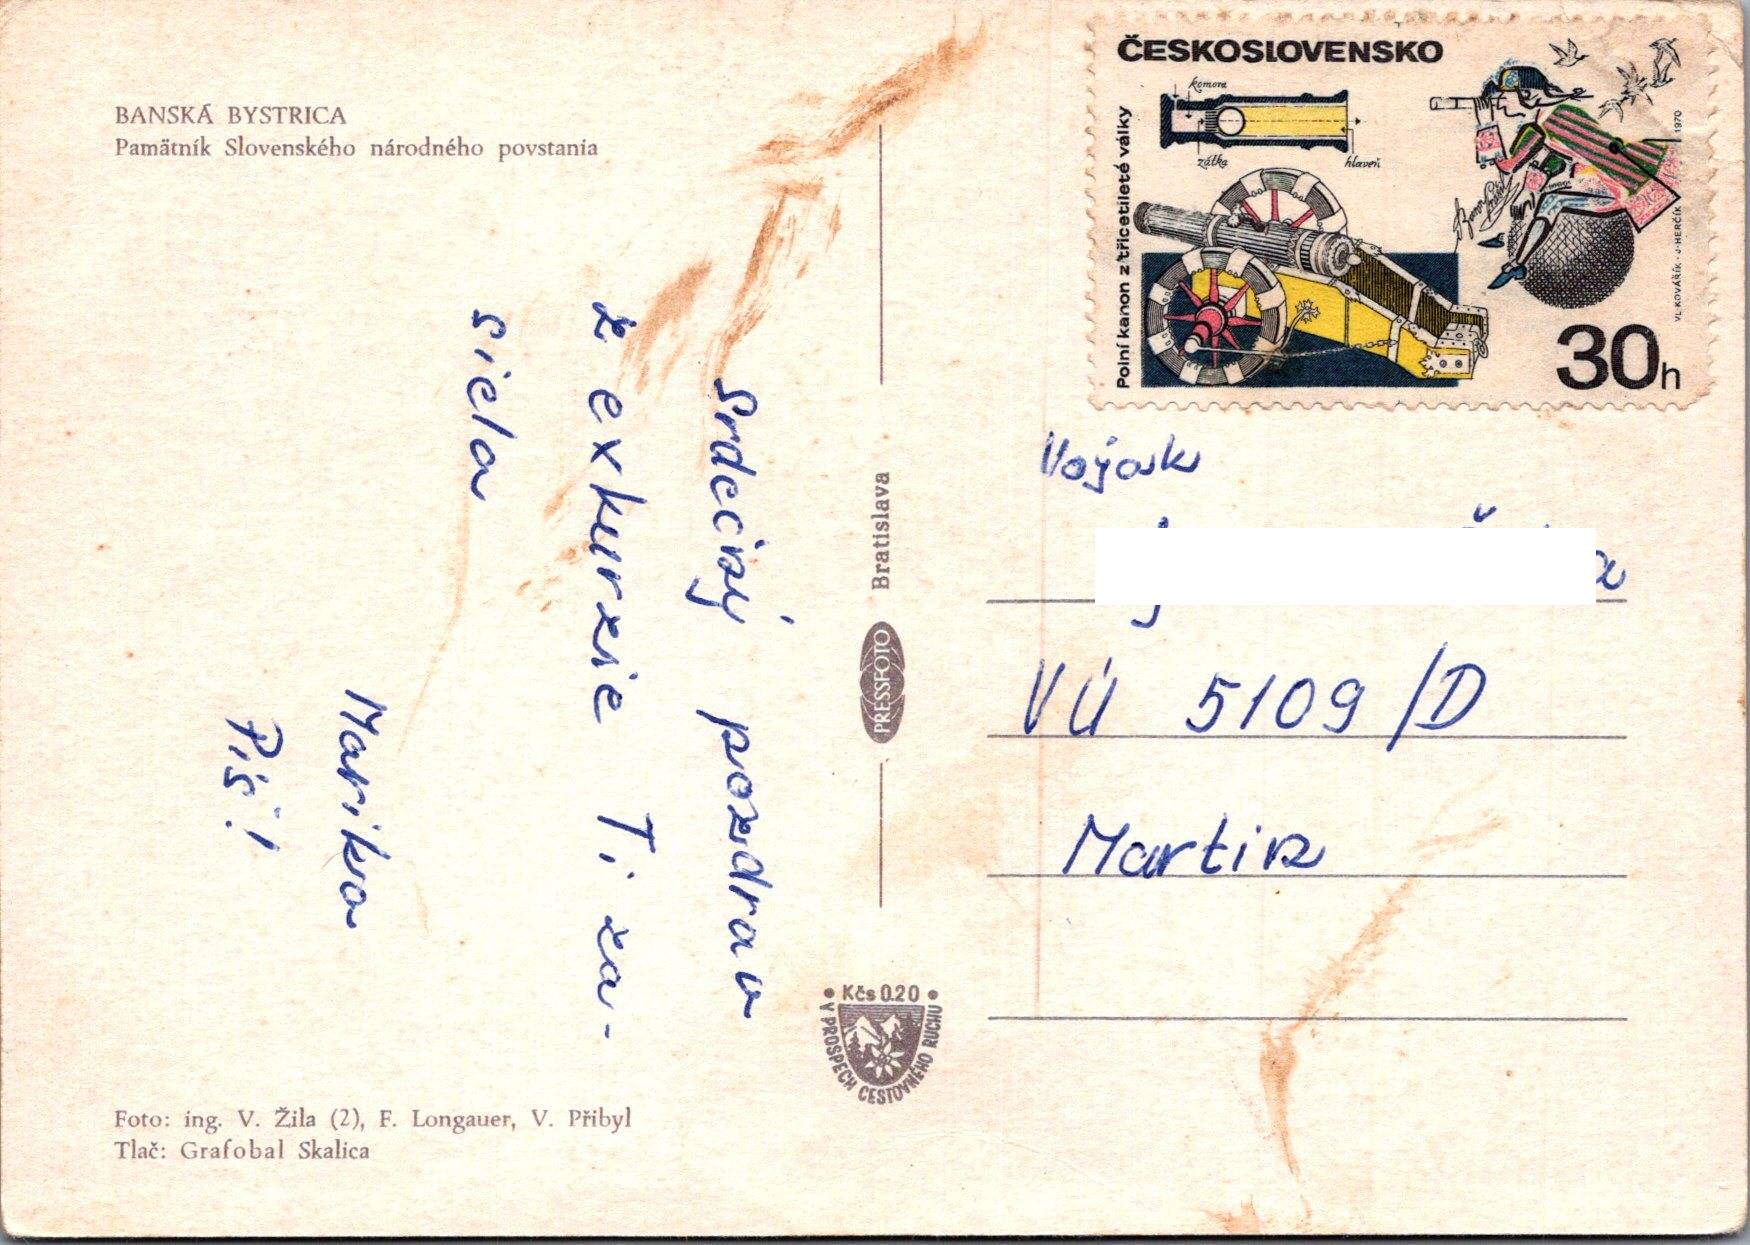 BANSKÁ BYSTRICA
Pamätník Slovenského národného povstania
Srdečný pozdrav
z exkurzie Ti za-
siela
Marika
Píš!
Foto: ing. V. Žila (2), F. Longauer, V. Přibyl
Tlač: Grafobal Skalica
PRESSFOTO Bratislava
• Kčs 0.20 •
V PROSPECH CESTOVNÉHO RUCHU
ČESKOSLOVENSKO
komora
zátka
hlaveň
Polní kanon z třicetileté války
1970
VL. KOVÁŘÍK · J. HERČÍK
30h
Vojak
VÚ 5109/D
Martin